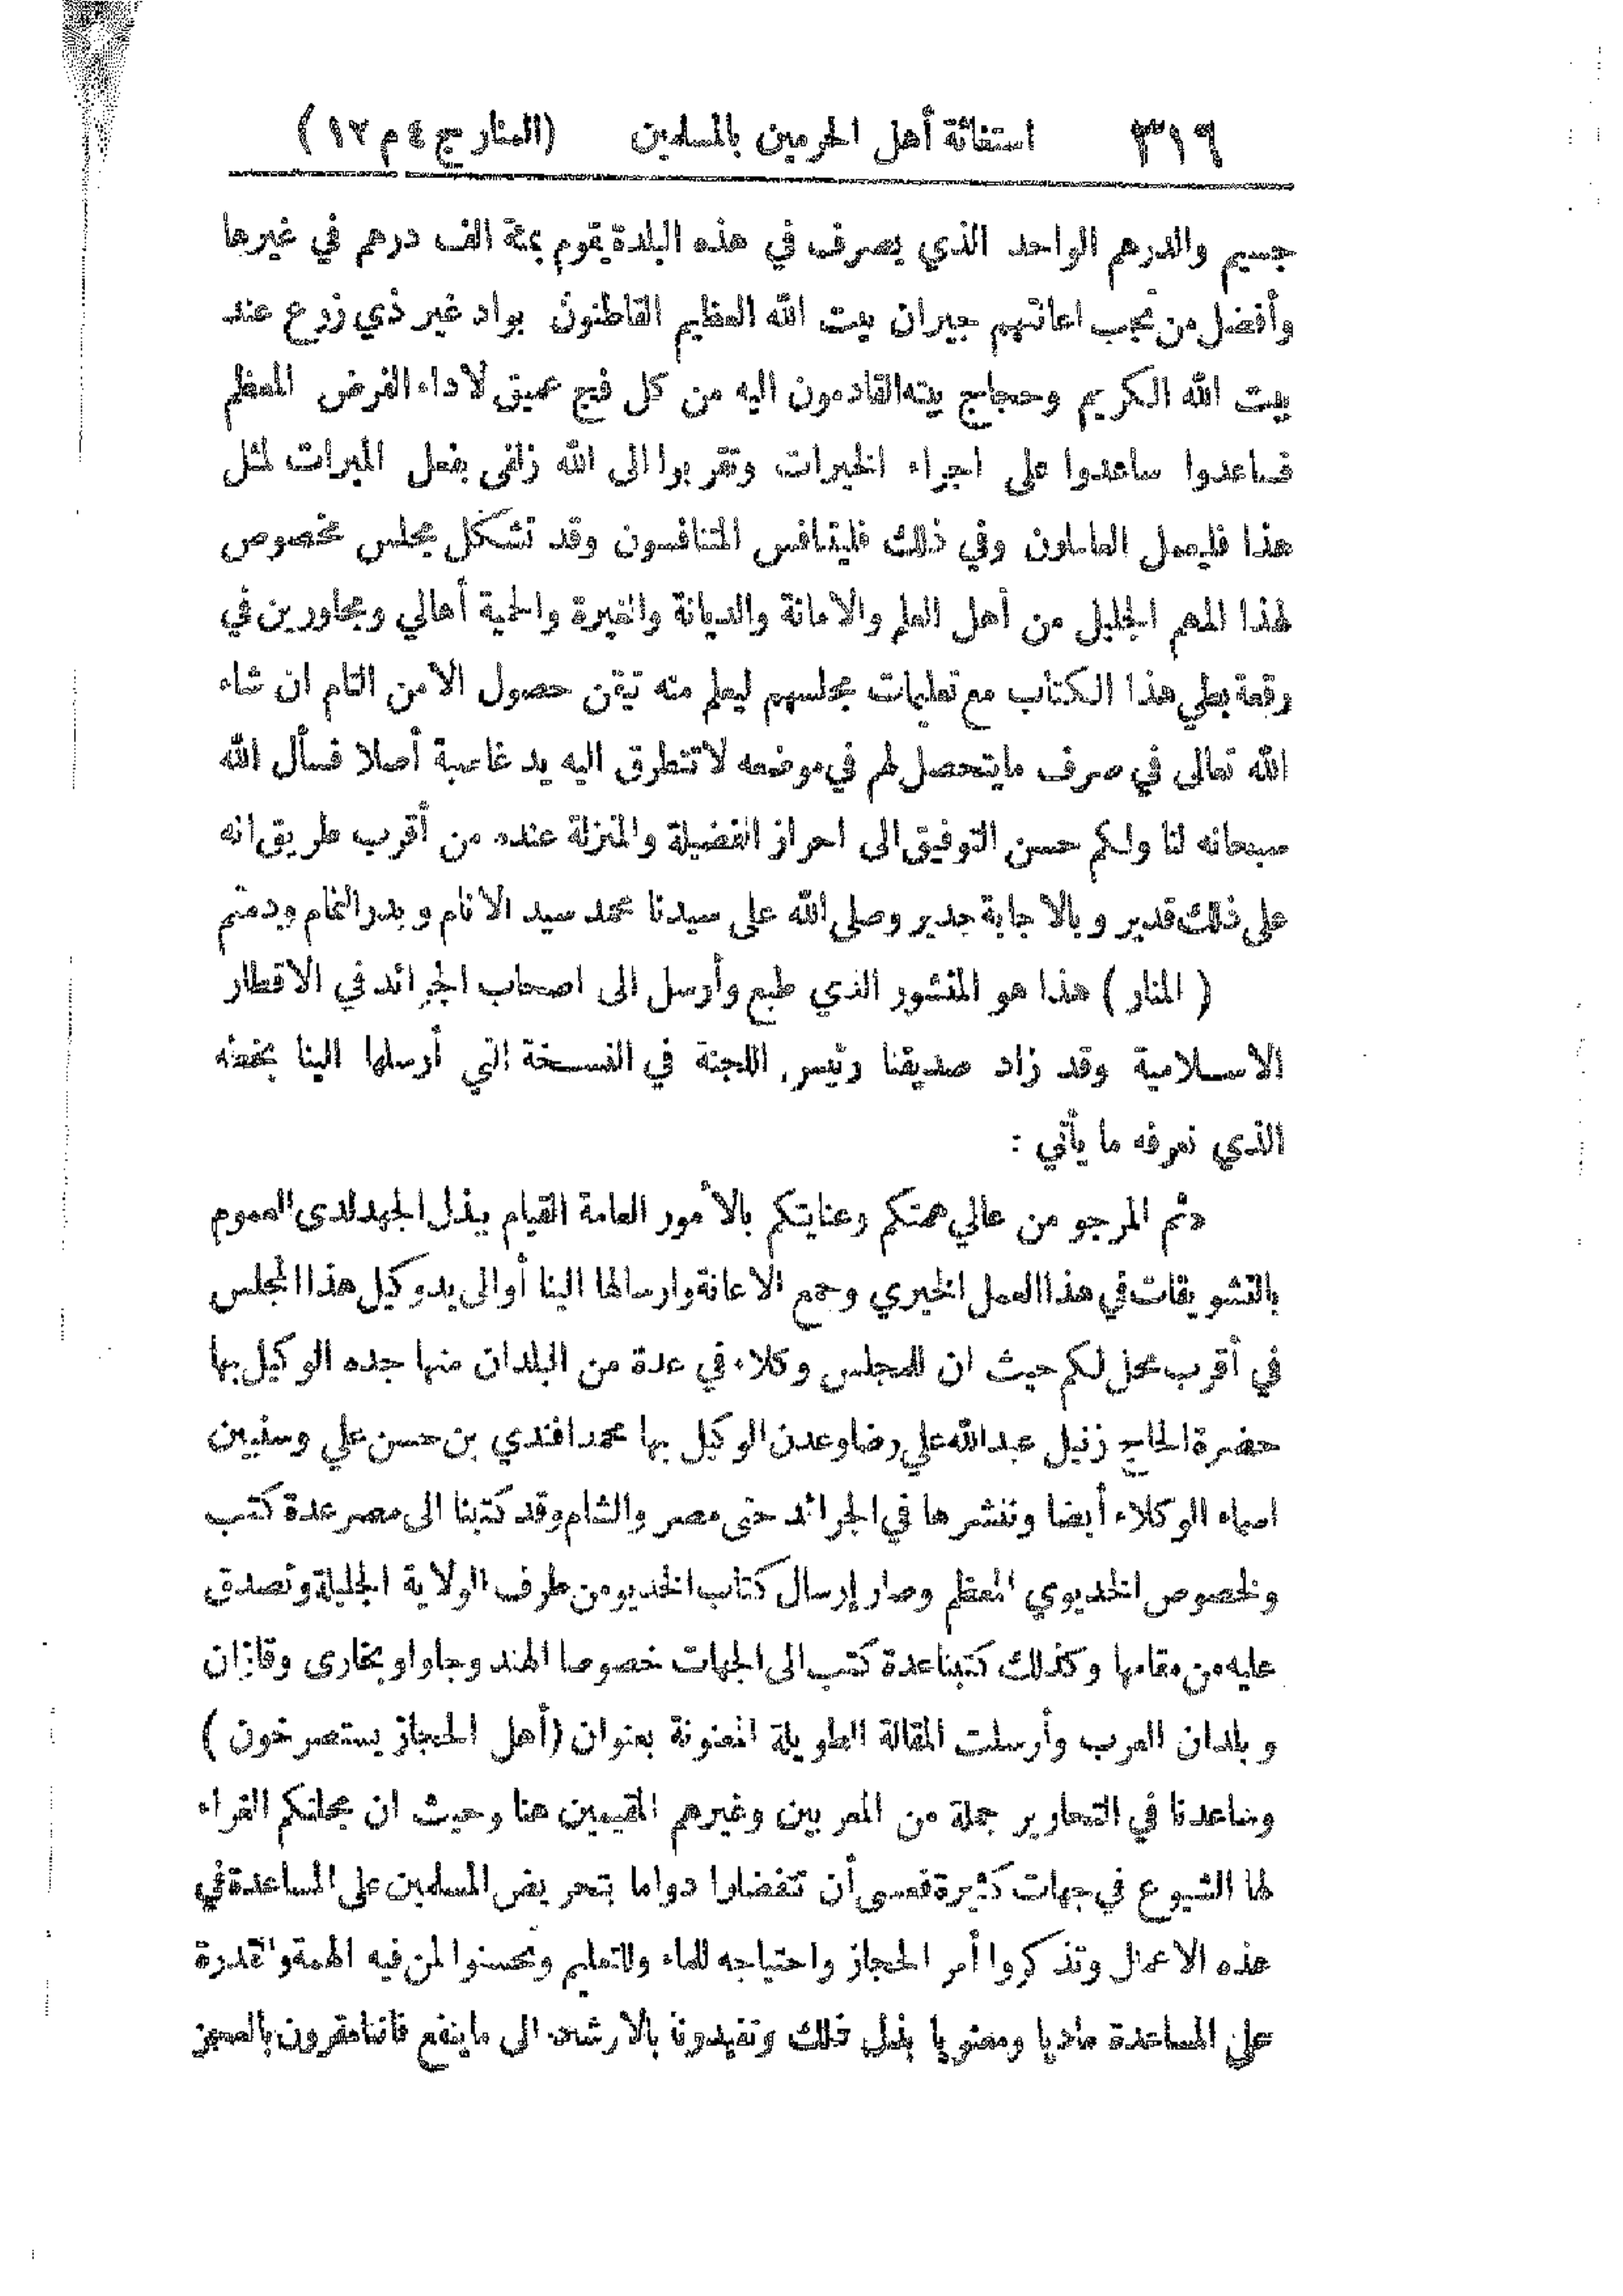 ٣١٦ استغاثة أهل الحرمين بالمسلمين (المنار ج ٤ م ١٢)
جسيم والدرهم الواحد الذي يصرف في هذه البلدة يقوم بمئة الف درهم في غيرها
وأفضل من تجب اعانتهم جيران بيت الله العظيم القاطنون بواد غير ذي زرع عند
بيت الله الكريم وحجاج بيته القادمون اليه من كل فج عميق لاداء الفرض المعظم
فساعدوا ساعدوا على اجراء الخيرات وتقربوا الى الله زلفى بفعل المبرات لمثل
هذا فليعمل العاملون وفي ذلك فليتنافس المتنافسون وقد تشكل مجلس مخصوص
لهذا المهم الجليل من أهل العلم والامانة والديانة والغيرة والحمية أهالي ومجاورين في
رقعة بطي هذا الكتاب مع تعليمات مجلسهم ليعلم منه تيقن حصول الامن التام ان شاء
الله تعالى في صرف ما يتحصل لهم في موضعه لا تتطرق اليه يد غاصبة أصلا فنسأل الله
سبحانه لنا ولكم حسن التوفيق الى احراز الفضيلة والمنزلة عنده من أقرب طريق انه
على ذلك قدير وبالاجابة جدير وصلى الله على سيدنا محمد سيد الانام وبدر التمام ودمتم
(المنار) هذا هو المنشور الذي طبع وأرسل الى اصحاب الجرائد في الاقطار
الاسلامية وقد زاد صديقنا رئيس اللجنة في النسخة التي أرسلها الينا بخطه
الذي نعرفه ما يأتي :
وثم المرجو من عالي همتكم وعنايتكم بالأمور العامة القيام ببذل الجهد لدى العموم
بالتشويقات في هذا العمل الخيري وجمع الاعانة وارسالها الينا أو الى يد وكيل هذا المجلس
في أقرب محل لكم حيث ان للمجلس وكلاء في عدة من البلدان منها جده الوكيل بها
حضرة الحاج زنيل عبد الله علي رضا وعدن الوكيل بها محمد افندي بن حسن علي وسنبين
اسماء الوكلاء أيضا وننشرها في الجرائد حتى مصر والشام وقد كتبنا الى مصر عدة كتب
ولخصوص الخديوي المعظم وصار إرسال كتاب الخديو من طرف الولاية الجليلة وتصدق
عليه من مقامها وكذلك كتبنا عدة كتب الى الجهات خصوصا الهند وجاوا وبخارى وقازان
وبلدان العرب وأرسلت المقالة الطويلة المعنونة بعنوان (أهل الحجاز يستصرخون)
وساعدنا في التحارير جملة من المعربين وغيرهم المقيمين هنا وحيث ان مجلتكم الغراء
لها الشيوع في جهات كثيرة فعسى أن تتفضلوا دواما بتحريض المسلمين على المساعدة في
هذه الاعمال وتذكروا أمر الحجاز واحتياجه للماء وللتعليم وتحسنوا لمن فيه الهمة والقدرة
على المساعدة ماديا ومعنويا بفعل ذلك وتفيدونا بالارشاد الى ما ينفع فاننا مقرون بالعجز